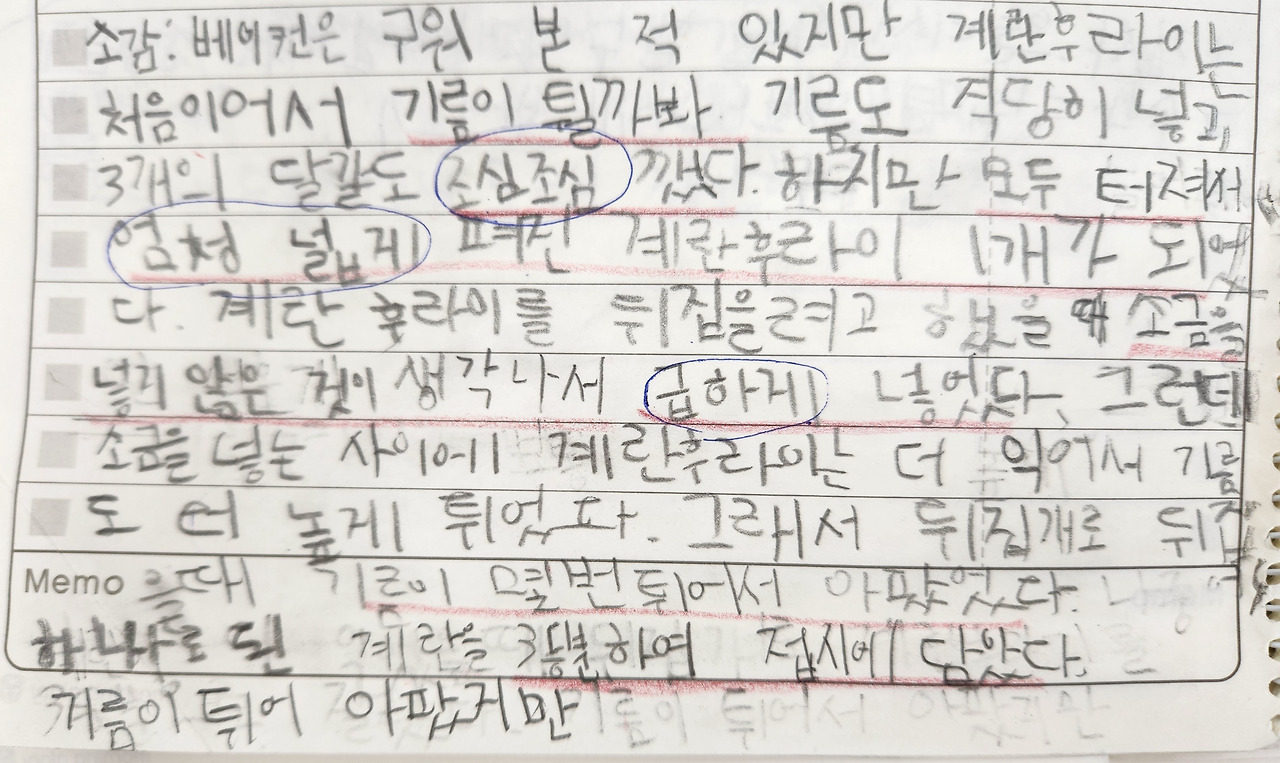 소감: 베이컨은 구워 본 적 있지만 계란후라이는
처음이어서 기름이 튈까봐 기름도 적당히 넣고,
3개의 달걀도 조심조심 깼다. 하지만 모두 터져서
엄청 넓게 펴진 계란후라이 1개가 되어
다. 계란 후라이를 뒤집을려고 하였을 때 소금을
넣지 않은 것이 생각나서 급하게 넣었다. 그런데
소금을 넣는 사이에 계란후라이는 더 익어서 기름
도 더 높게 튀었다. 그래서 뒤집개로 뒤집
Memo 을때 기름이 몇번 튀어서 아팠었다.
하나로 된 계란을 3등분하여 접시에 담았다.
기름이 튀어 아팠지만